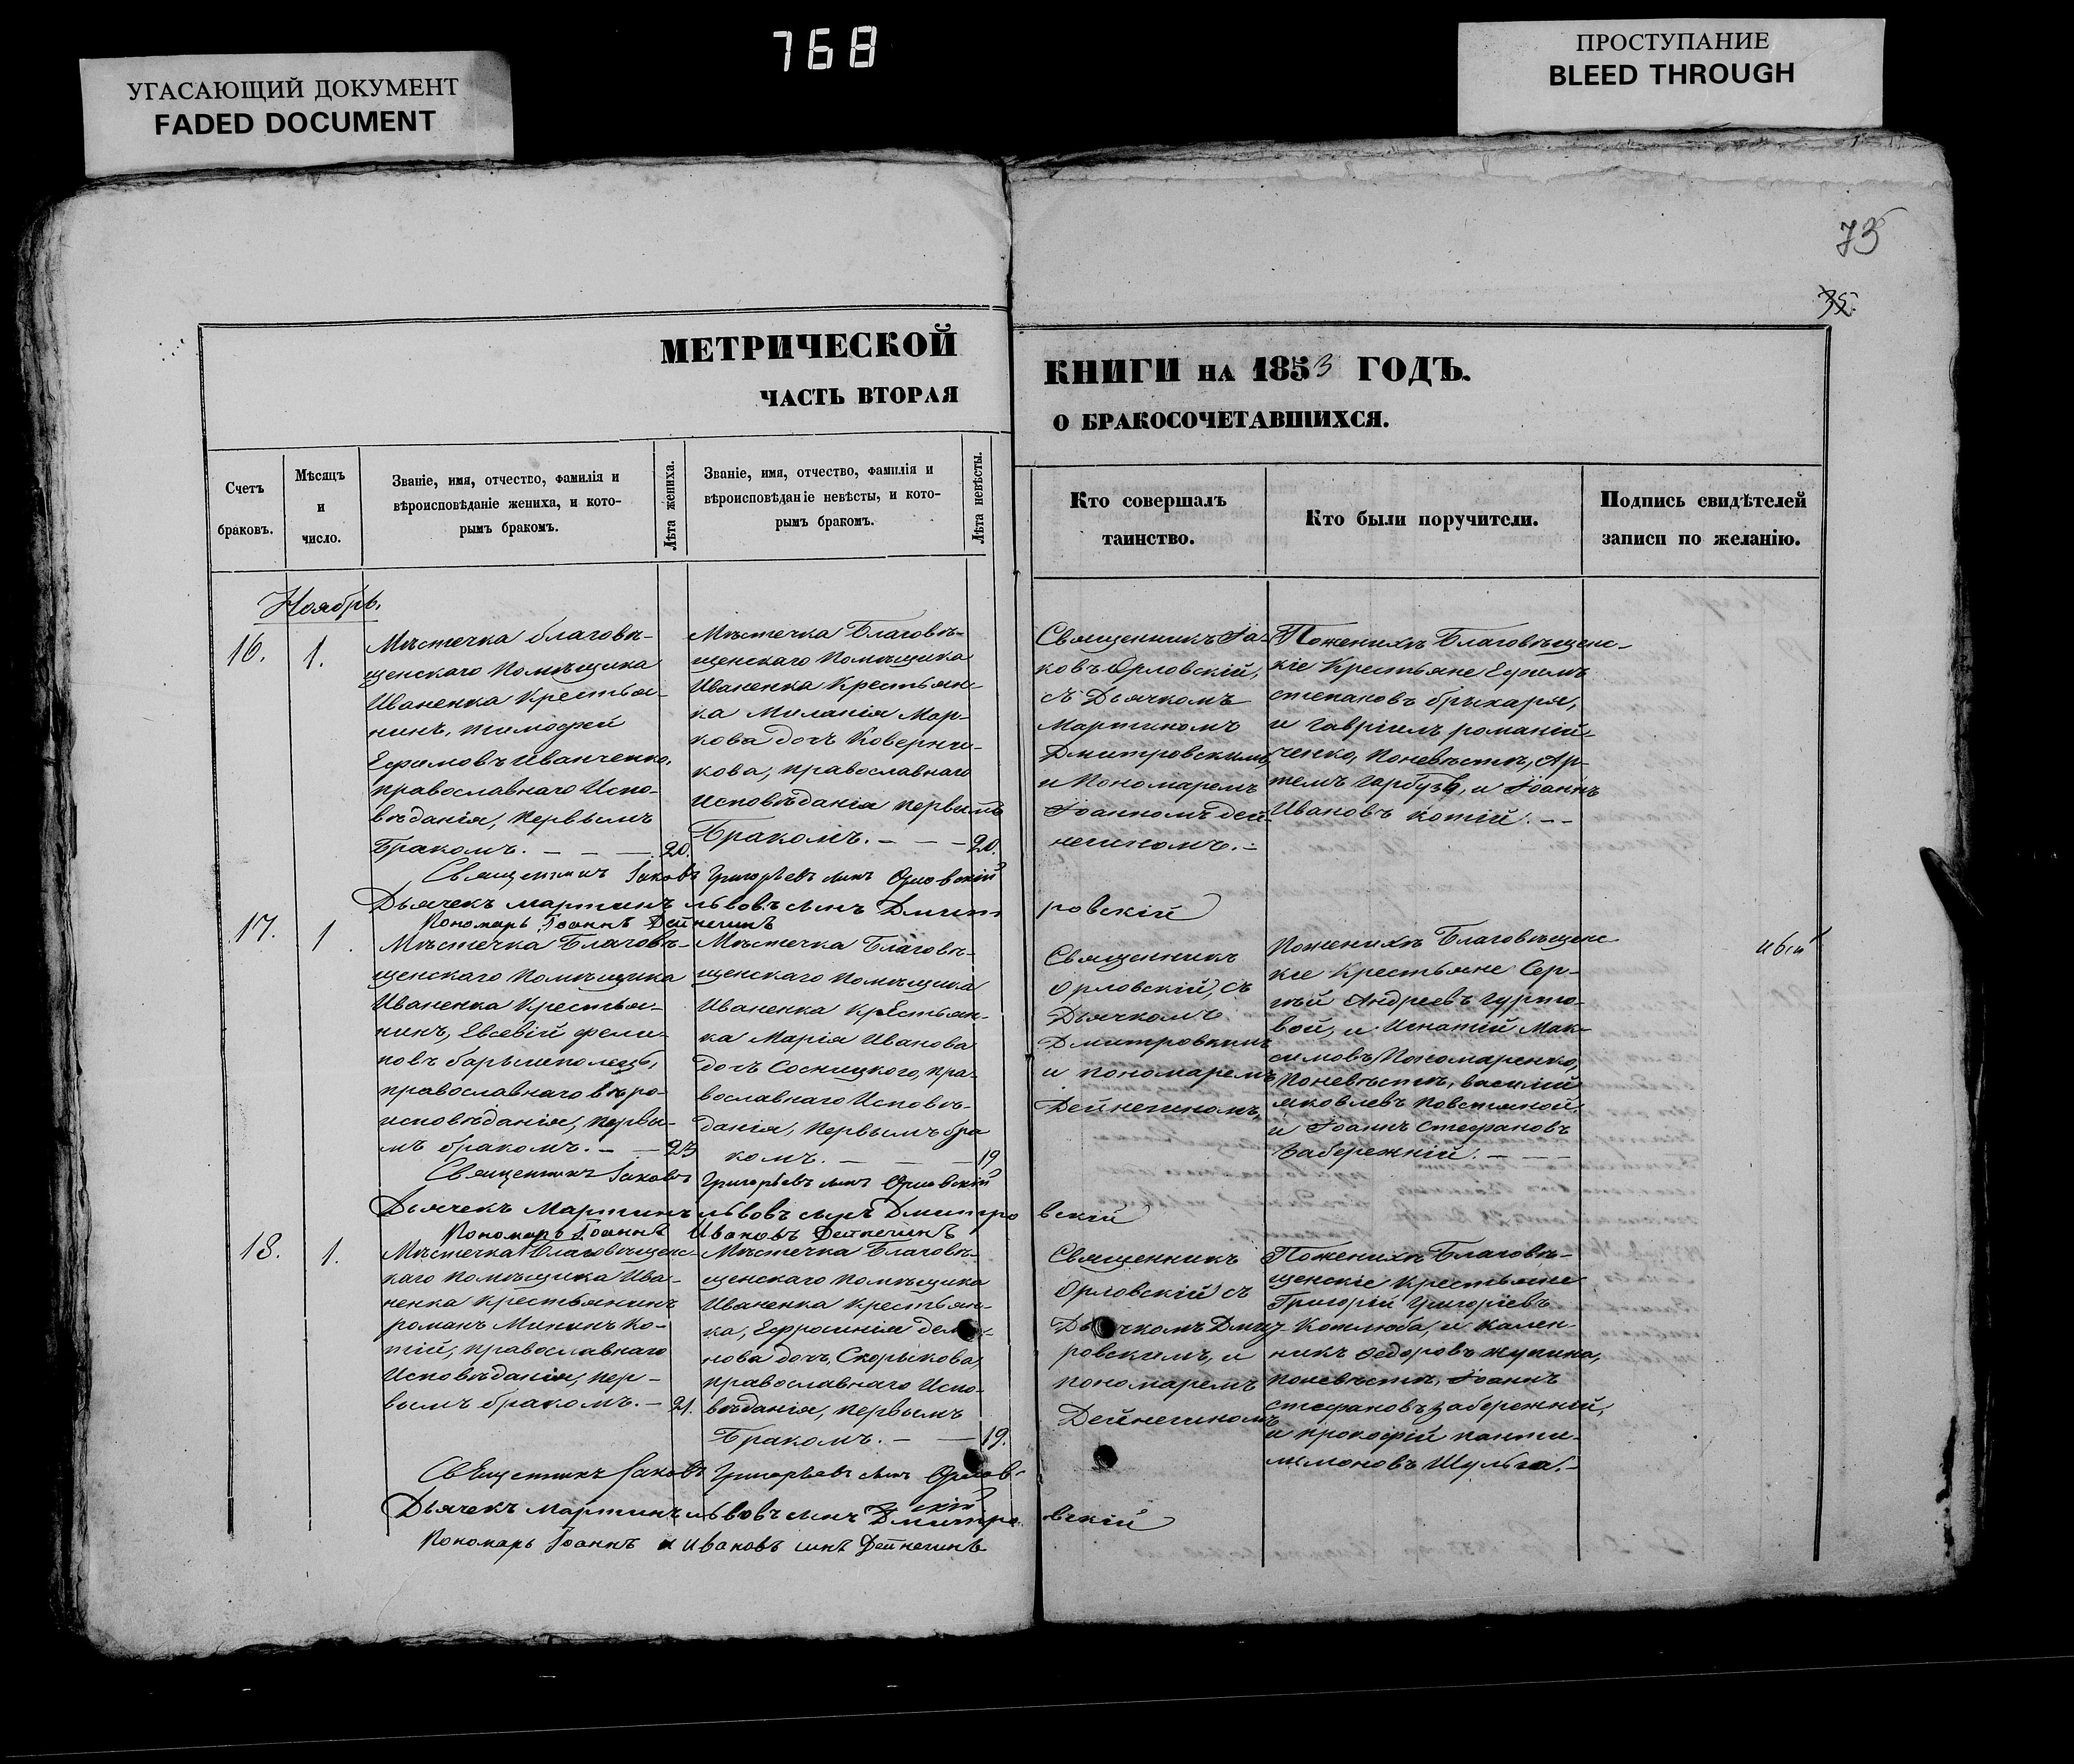 768
УГАСАЮЩИЙ ДОКУМЕНТ
FADED DOCUMENT
ПРОСТУПАНИЕ
BLEED THROUGH
73
35.
МЕТРИЧЕСКОЙ
ЧАСТЬ ВТОРАЯ
КНИГИ НА 1853 ГОДЪ.
О БРАКОСОЧЕТАВШИХСЯ.
Счетъ
браковъ.
Мѣсяцъ
и
число.
Званіе, имя, отчество, фамилія и
вѣроисповѣданіе жениха, и кото-
рымъ бракомъ.
Лѣта жениха.
Званіе, имя, отчество, фамилія и
вѣроисповѣданіе невѣсты, и кото-
рымъ бракомъ.
Лѣта невѣсты.
Кто совершалъ
таинство.
Кто были поручители.
Подпись свидѣтелей
записи по желанію.
Ноябрь.
16.
1.
Мѣстечка благовѣ-
щенскаго Помѣщика
Иваненка Крестья-
нинъ, Тимофей
Ефимовъ Иванченко,
православнаго Испо-
вѣданія, Первымъ
Бракомъ. — — — 20.
Мѣстечка Благовѣ-
щенскаго Помѣщика
Иваненка Крестьян-
ка Миланія Мар-
кова дочъ Коверни-
кова, православнаго
исповѣданія первымъ
Бракомъ. — — — 20.
Священникъ Іа-
ковъ Орловскій,
съ Дьячкомъ
Мартиномъ
Дмитровскимъ,
и Пономаремъ
Іоанномъ Дей-
негиномъ. —
Поженихѣ Благовѣщенс-
кіе Крестьяне Ефимъ
степановъ брыкаря,
и Гавріилъ романій-
ченко, Поневѣстѣ, Ар-
темъ гарбузъ, и Іоаннъ
Ивановъ котій. — —
Священникъ Іаковъ Григорьевъ сынъ Орловскій
Дьячекъ Мартинъ Львовъ сынъ Дмитровскій
Пономарь Іоаннъ Дейнегинъ
17.
1.
Мѣстечка Благовѣ-
щенскаго Помѣщика
Иваненка Крестья-
нинъ, Евсевій фели-
повъ барышполецъ,
православнаго вѣро-
исповѣданія, первы-
мъ бракомъ. — — 23
Мѣстечка Благовѣ-
щенскаго Помѣщика
Иваненка крестьян-
ка Марія Иванова
дочъ Сосницкого, пра-
вославнаго Исповѣ-
данія, Первымъ бра
комъ. — — — 19
Священникъ
Орловскій, съ
Дьячкомъ
Дмитровскимъ
и пономаремъ
Дейнегиномъ,
Поженихѣ Благовѣщенс
кіе Крестьяне Сер-
гѣй Андреевъ гурто-
вой, и Игнатій Мак-
симовъ Пономаренко,
Поневѣстѣ, василій
яковлевъ повстяной,
и Іоаннъ Стефановъ
Забережній. — — —
Священникъ Іаковъ Григорьевъ сынъ Орловскій
Дьячекъ Мартинъ Львовъ сынъ Дмитровскій
Пономарь Іоаннъ Ивановъ Дейнегинъ
18.
1.
Мѣстечка Благовѣщенс-
каго помѣщика Ива-
ненка крестьянинъ
романъ Мининъ Ко-
тій, православнаго
Исповѣданія, пер-
вымъ бракомъ. — 21.
Мѣстечка Благовѣ-
щенскаго помѣщика
Иваненка крестьян-
ка, Ефросинія
нова дочъ, Скорыкова,
православнаго Испо-
вѣданія, первымъ
Бракомъ. — — 19.
Священникъ
Орловскій съ
Дьячкомъ Дмит-
ровскимъ, и
пономаремъ
Дейнегиномъ
Поженихѣ Благовѣ-
щенскіе Крестьяне
Григорій Григоріевъ
Котлюба, и кален-
никъ Федоровъ жупина,
поневѣстѣ, Іоаннъ
стефановъ забережній,
и прокофій панти-
лимоновъ Шульга. —
Священникъ Іаковъ Григорьевъ сынъ Орлов-
скій
Дьячекъ Мартинъ Львовъ сынъ Дмитровскій
Пономарь Іоаннъ Ивановъ сынъ Дейнегинъ